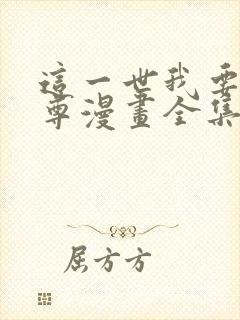 這一世我要
尊漫畫全集
屈方方